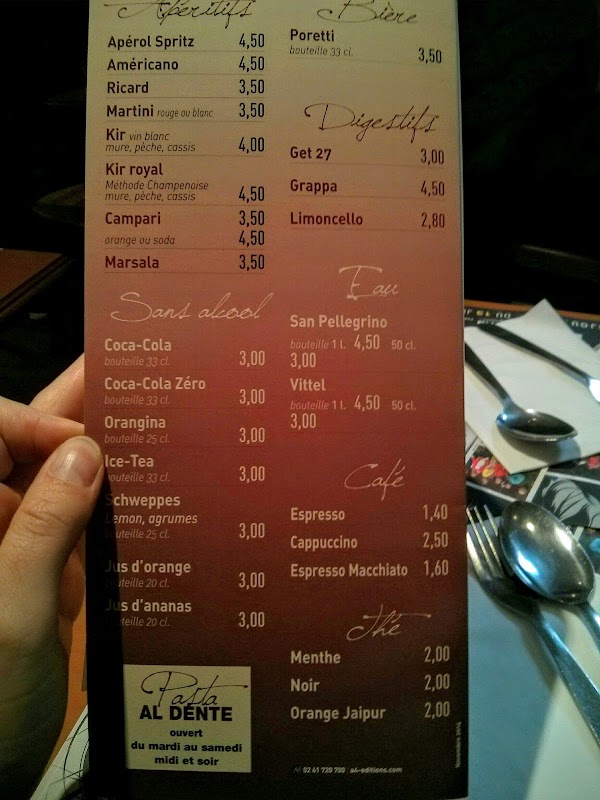 Apéritifs
Apérol Spritz 4,50
Américano 4,50
Ricard 3,50
Martini rouge ou blanc 3,50
Kir vin blanc
mure, pèche, cassis 4,00
Kir royal
Méthode Champenoise
mure, pèche, cassis 4,50
Campari 3,50
orange ou soda 4,50
Marsala 3,50
Sans alcool
Coca-Cola
bouteille 33 cl. 3,00
Coca-Cola Zéro
bouteille 33 cl. 3,00
Orangina
bouteille 25 cl. 3,00
Ice-Tea
bouteille 33 cl. 3,00
Schweppes
Lemon, agrumes
bouteille 25 cl. 3,00
Jus d'orange
bouteille 20 cl. 3,00
Jus d'ananas
bouteille 20 cl. 3,00
Pasta
AL DENTE
ouvert
du mardi au samedi
midi et soir
Bière
Poretti
bouteille 33 cl. 3,50
Digestifs
Get 27 3,00
Grappa 4,50
Limoncello 2,80
Eau
San Pellegrino
bouteille 1 l. 4,50 50 cl.
3,00
Vittel
bouteille 1 l. 4,50 50 cl.
3,00
Café
Espresso 1,40
Cappuccino 2,50
Espresso Macchiato 1,60
Thé
Menthe 2,00
Noir 2,00
Orange Jaipur 2,00
02 41 720 700 | a4-editions.com
Novembre 2014